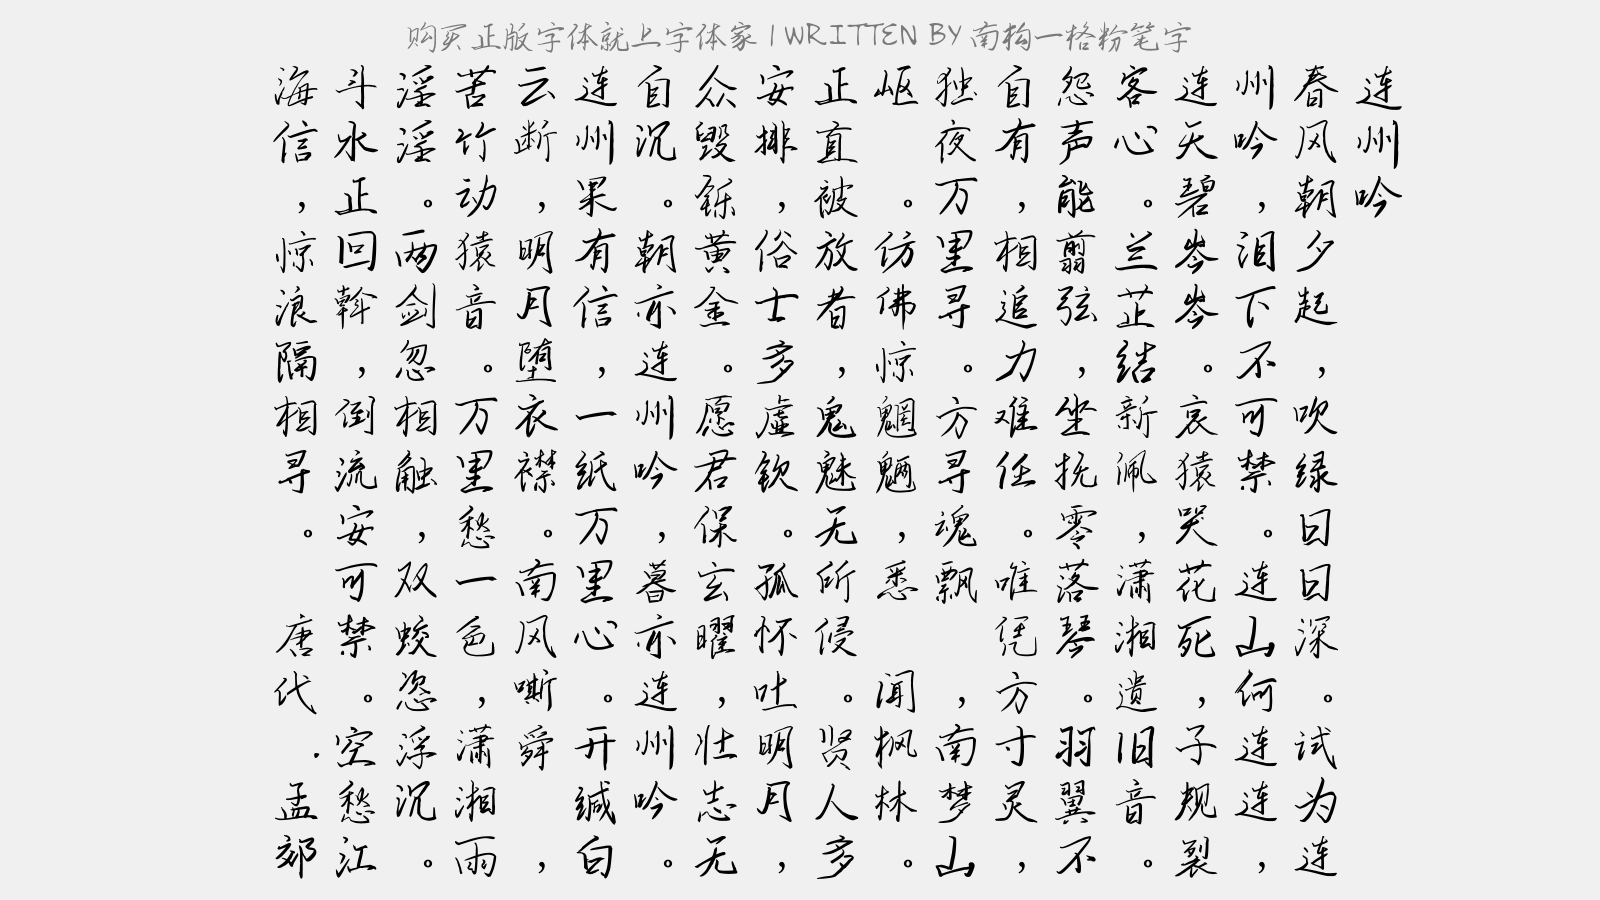 购买正版字体就上字体家 | WRITTEN BY 南构一格粉笔字
连州吟
春风朝夕起，吹绿日日深。试为连
州吟，泪下不可禁。连山何连连，
连天碧岑岑。哀猿哭花死，子规裂
客心。兰芷结新佩，潇湘遗旧音。
怨声能翦弦，坐抚零落琴。羽翼不
自有，相追力难任。唯凭方寸灵，
独夜万里寻。方寻魂飘 ，南梦山
岖 。仿佛惊魍魉，悉 闻枫林。
正直被放者，鬼魅无所侵。贤人多
安排，俗士多虚钦。孤怀吐明月，
众毁铄黄金。愿君保玄曜，壮志无
自沉。朝亦连州吟，暮亦连州吟。
连州果有信，一纸万里心。开缄白
云断，明月堕衣襟。南风嘶舜 ，
苦竹动猿音。万里愁一色，潇湘雨
淫淫。两剑忽相触，双蛟恣浮沉。
斗水正回斡，倒流安可禁。空愁江
海信，惊浪隔相寻。 唐代.孟郊